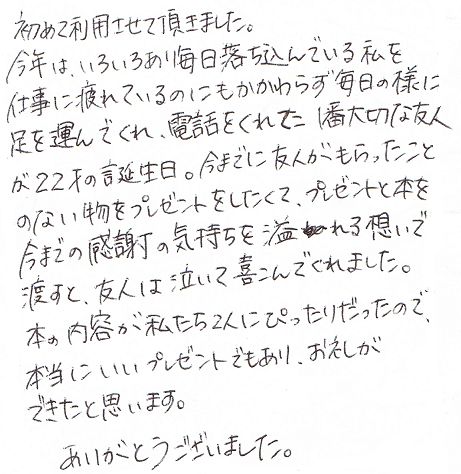 初めて利用させて頂きました。
今年は、いろいろあり毎日落ち込んでいる私を
仕事に疲れているのにもかかわらず毎日の様に
足を運んでくれ、電話をくれてた1番大切な友人
が22才の誕生日。今までに友人がもらったこと
のない物をプレゼントをしたくて、プレゼントと本を
今までの感謝の気持ちを溢れる想いで
渡すと、友人は泣いて喜こんでくれました。
本の内容が私たち2人にぴったりだったので、
本当にいいプレゼントでもあり、お礼しが
できたと思います。
ありがとうございました。